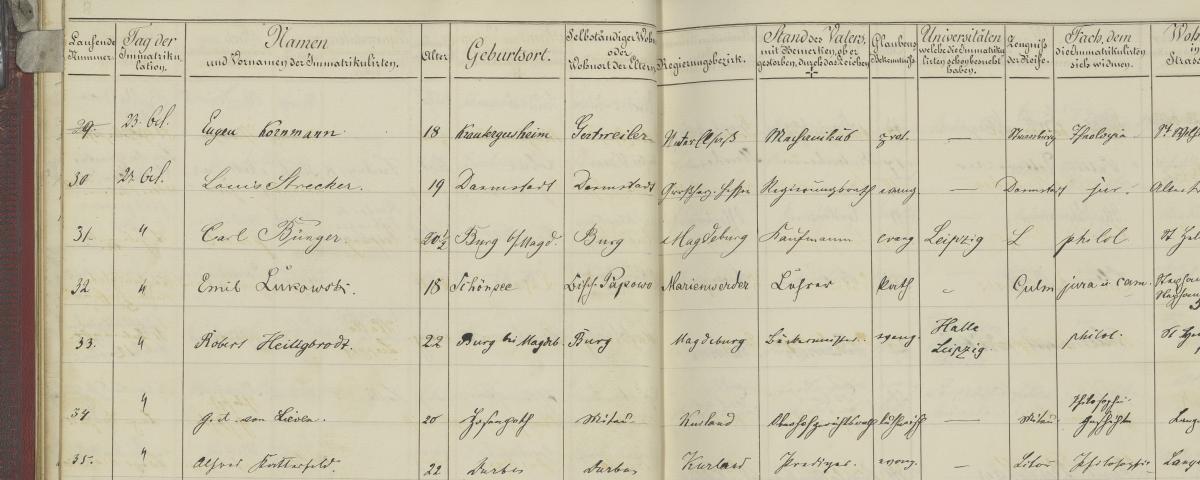 Laufende Nummer. Tag der Immatrikulation. Namen und Vornamen der Immatrikulirten. Alter Geburtsort. Selbständiger Wohn- oder Wohnort der Eltern. Regierungsbezirk. Stand des Vaters, mit Bemerken, ob er gestorben, durch das Zeichen + Glaubens Bekenntniß Universitäten welche die Immatrikulirten schon besucht haben. Zeugniß der Reife. Fach, dem die Immatrikulirten sich widmen. Woh in Strass
29. 23. Oct. Eugen Kornmann 18 Krautergersheim Gertweiler Unter Elsaß Mechanikus prot. — Strassburg Theologie St.
30 23. Oct. Louis Strecker. 19 Darmstadt Darmstadt Großherz. Hessen Regierungsrath evang — Darmstadt jur.
31. " Carl Bünger. 20 1/2 Burg b/Magd. Burg Magdeburg Kaufmann evang Leipzig philol St
32 " Emil Lukowski. 18 Schönsee Papowo Marienwerder Lehrer Kath – Culm jura u. cam.
33. " Robert Heiligbrodt. 22 Burg bei Magdeb. Burg Magdeburg Bäckermeister evang. Halle Leipzig. philol. St
34 " von Lieven. 20 Mitau Kurland — Mitau Philosophie Geschichte Lange
35. " Alfred 22 Durben Durben Kurland Prediger. evang. — Philosophie Lange